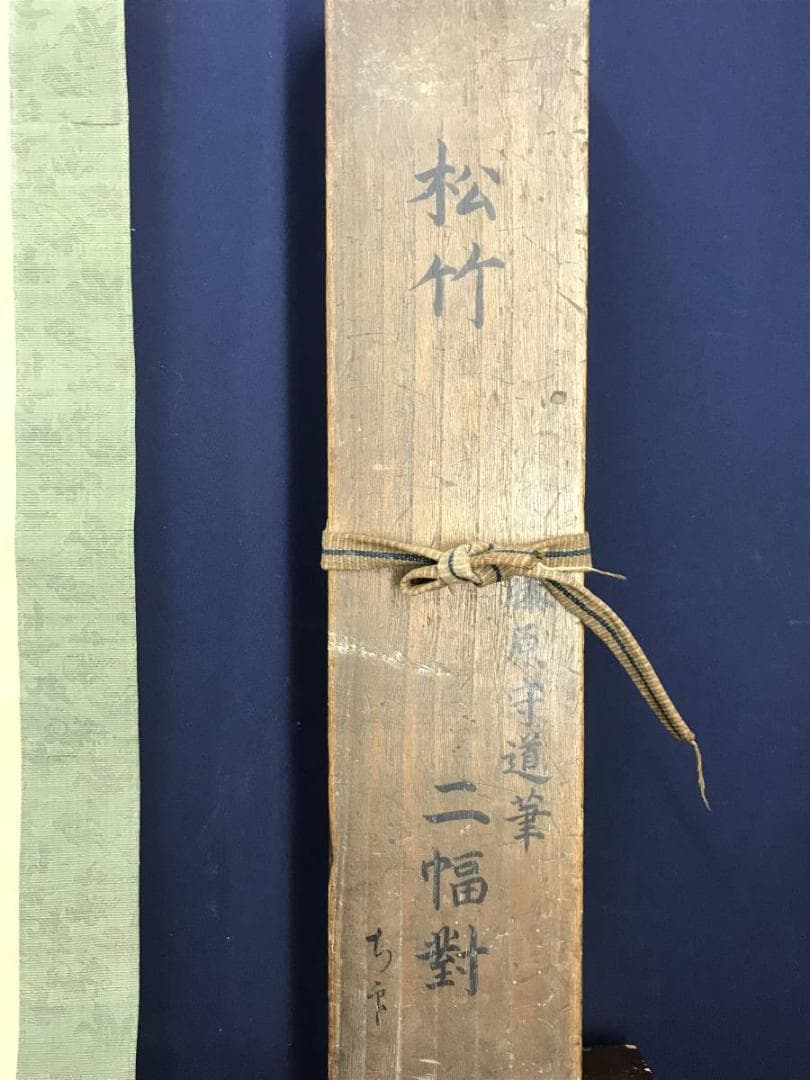 松竹
藤原守道筆
二幅對